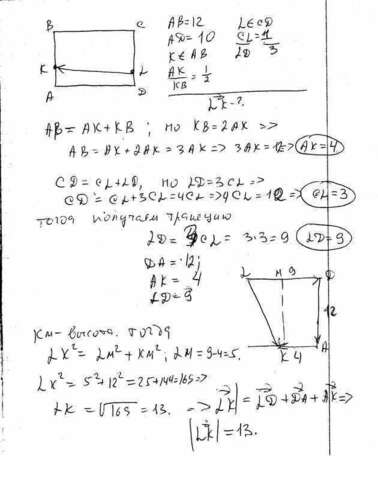 B C
K L
A D
AB=12 L∈CD
AD=10 CL/LD=1/3
K∈AB
AK/KB=1/2
|LK|-?
AB=AK+KB; но KB=2AK =>
AB=AK+2AK=3AK=>3AK=12=>AK=4
CD=CL+LD, но LD=3CL=>
CD=CL+3CL=4CL=>4CL=12=>CL=3
тогда получаем трапецию
LD=3CL=3·3=9 LD=9
DA=12;
AK=4
LD=9
L M 9 D
12
K 4 A
KM-высота. тогда
LK²=LM²+KM²; LM=9-4=5.
LK²=5²+12²=25+144=169=>
LK=√169=13. ->|LK|=LD+DA+AK=>
|LK|=13.